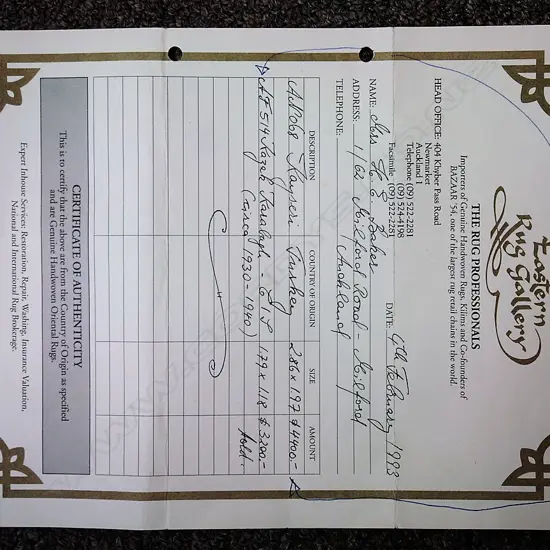 Eastern
Rug Gallery
THE RUG PROFESSIONALS
Importers of Genuine Handwoven Rugs, Kilims and Co-founders of
BAZAAR '54, one of the largest rug retail chains in the world.
HEAD OFFICE: 404 Khyber Pass Road
Newmarket
Auckland 1
Telephone (09) 522-2281
(09) 524-4198
Facsimile (09) 522-2281
DATE: 4th February 1993
NAME: Mrs H. E. Baker
ADDRESS: 1/62 Milford Road - Milford
Auckland
TELEPHONE:
DESCRIPTION COUNTRY OF ORIGIN SIZE AMOUNT
Kayseri Turkey 286 x 197 $4400-
AF 514 Kazak Karabagh - 179 x 118 $3200-
(circa 1930-1940) Sold.
CERTIFICATE OF AUTHENTICITY
This is to certify that the above are from the Country of Origin as specified
and are Genuine Handwoven Oriental Rugs.
Expert Inhouse Services: Restoration, Repair, Washing, Insurance Valuation,
National and International Rug Brokerage.